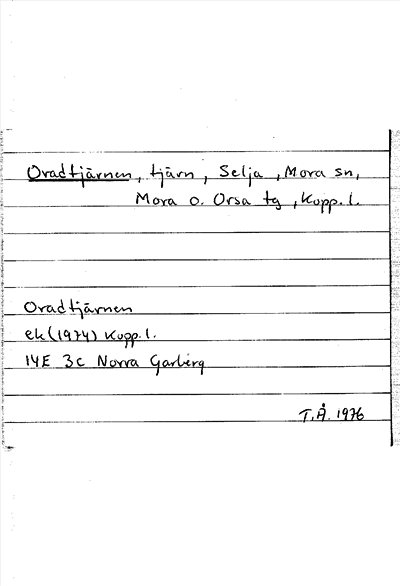 Oradtjärnen, tjärn, Selja, Mora sn,
Mora o. Orsa tg, Kopp. l.
Oradtjärnen
ek (1974) Kopp. l.
14E 3c Norra Garberg
T.Å. 1976